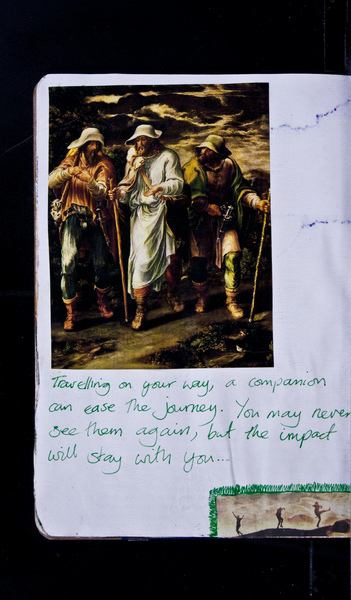 Travelling on your way, a companion
can ease the journey. You may never
see them again, but the impact
will stay with you...